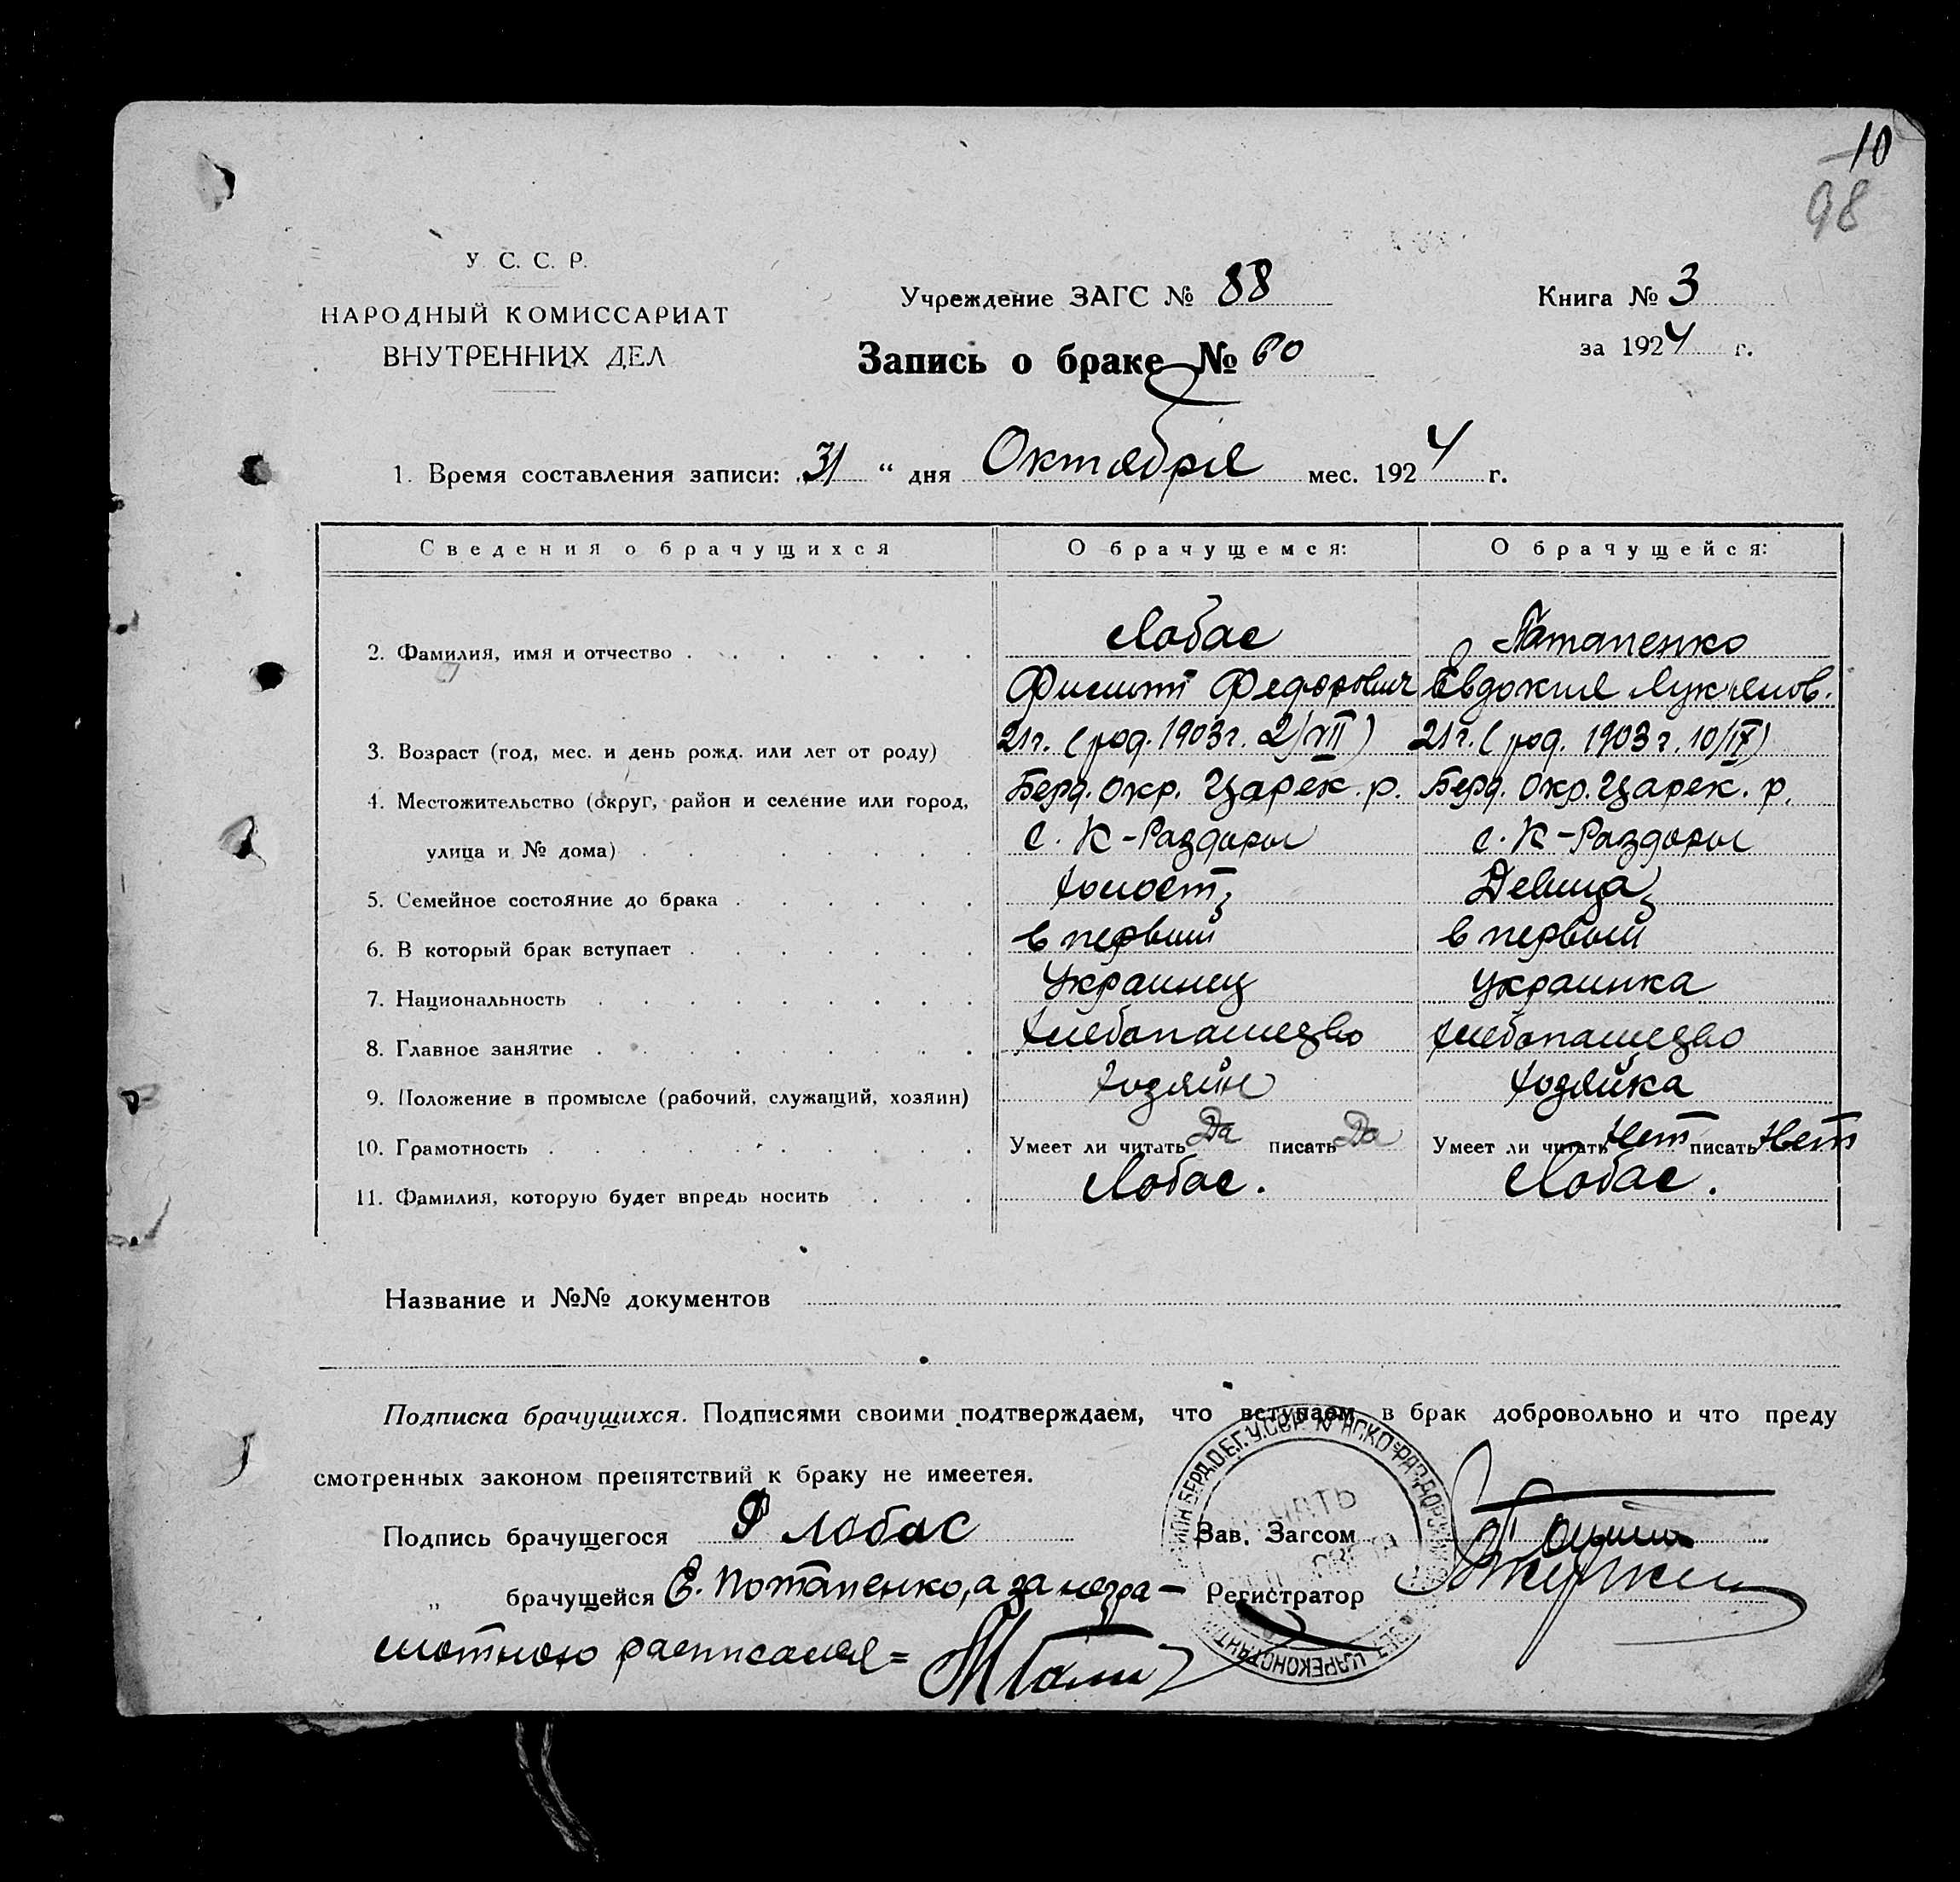 10
98
У. С. С. Р.
НАРОДНЫЙ КОМИССАРИАТ
ВНУТРЕННИХ ДЕЛ
Учреждение ЗАГС № 88
Книга № 3
Запись о браке № 60
за 1924 г.
1. Время составления записи: 31 “ дня Октября мес. 1924 г.
Сведения о брачущихся О брачущемся: О брачущейся:
2. Фамилия, имя и отчество Лобас Патапенко
Филипп Федорович Евдокия Лукьянов.
3. Возраст (год, мес. и день рожд. или лет от роду) 21 г. (род. 1903 г. 2/VII) 21 г. (род. 1903 г. 10/IV)
4. Местожительство (округ, район и селение или город, Берд. окр. Царек. р. Берд. окр. Царек. р.
улица и № дома) с. К-Раздоры с. К-Раздоры
5. Семейное состояние до брака Холост Девица
6. В который брак вступает в первый в первый
7. Национальность Украинец Украинка
8. Главное занятие хлебопашество хлебопашество
9. Положение в промысле (рабочий, служащий, хозяин) хозяин хозяйка
10. Грамотность Умеет ли читать Да писать Да Умеет ли читать Нет писать Нет
11. Фамилия, которую будет впредь носить Лобас. Лобас.
Название и №№ документов
Подписка брачущихся. Подписями своими подтверждаем, что вступаем в брак добровольно и что преду
смотренных законом препятствий к браку не имеется.
Подпись брачущегося Ф Лобас Зав. Загсом
„ брачущейся Е. Потапенко, а за негра- Регистратор
мотною расписался=